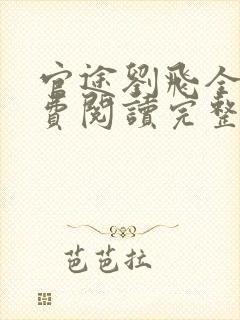 官途劉飛全
費閱讀完整
芭芭拉